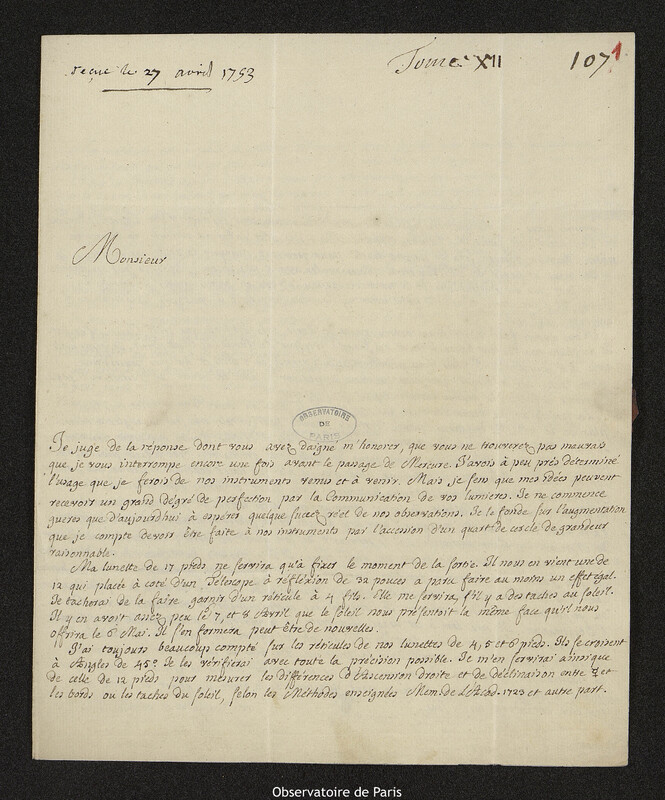 reçue le 27 avril 1753
Tome XII
107
1
Monsieur
OBSERVATOIRE
DE
PARIS
Je juge de la réponse dont vous avez daigné m'honorer, que vous ne trouverez pas mauvais
que je vous interrompe encore une fois avant le passage de Mercure. J'avois à peu près déterminé
l'usage que je ferois de nos instruments venus et à venir. Mais je sens que mes idées peuvent
recevoir un grand dégré de perfection par la Communication de vos lumieres. Je ne commence
gueres que d'aujourdhui à espérer quelque succez réel de nos observations. Je le fonde sur l'augmentation
que je compte devoir être faite à nos instruments par l'accession d'un quart de cercle de grandeur
raisonnable.
Ma lunette de 17 pieds ne servira qu'à fixer le moment de la sortie. Il nous en vient une de
12 qui placée à coté d'un Télescope à réfléxion de 32 pouces a paru faire au moins un effet égal.
Je tacherai de la faire garnir d'un réticule à 4 fils. Elle me servira, s'il y a des taches au soleil.
Il y en avoit assez peu le 7, et 8 Avril que le soleil nous présentoit la même face qu'il nous
offrira le 6 Mai. Il s'en formera peut être de nouvelles.
J'ai toujours beaucoup compté sur les réticules de nos lunettes de 4, 5 et 6 pieds. Ils se croisent
à Angles de 45°. Je les vérifierai avec toute la précision possible. Je m'en servirai ainsi que
de celle de 12 pieds pour mesurer les différences d'Ascension Droite et de déclinaison entre ☿ et
les bords ou les taches du soleil, selon les Méthodes enseignées Mem. de l'Acad. 1723 et autre part.
Observatoire de Paris